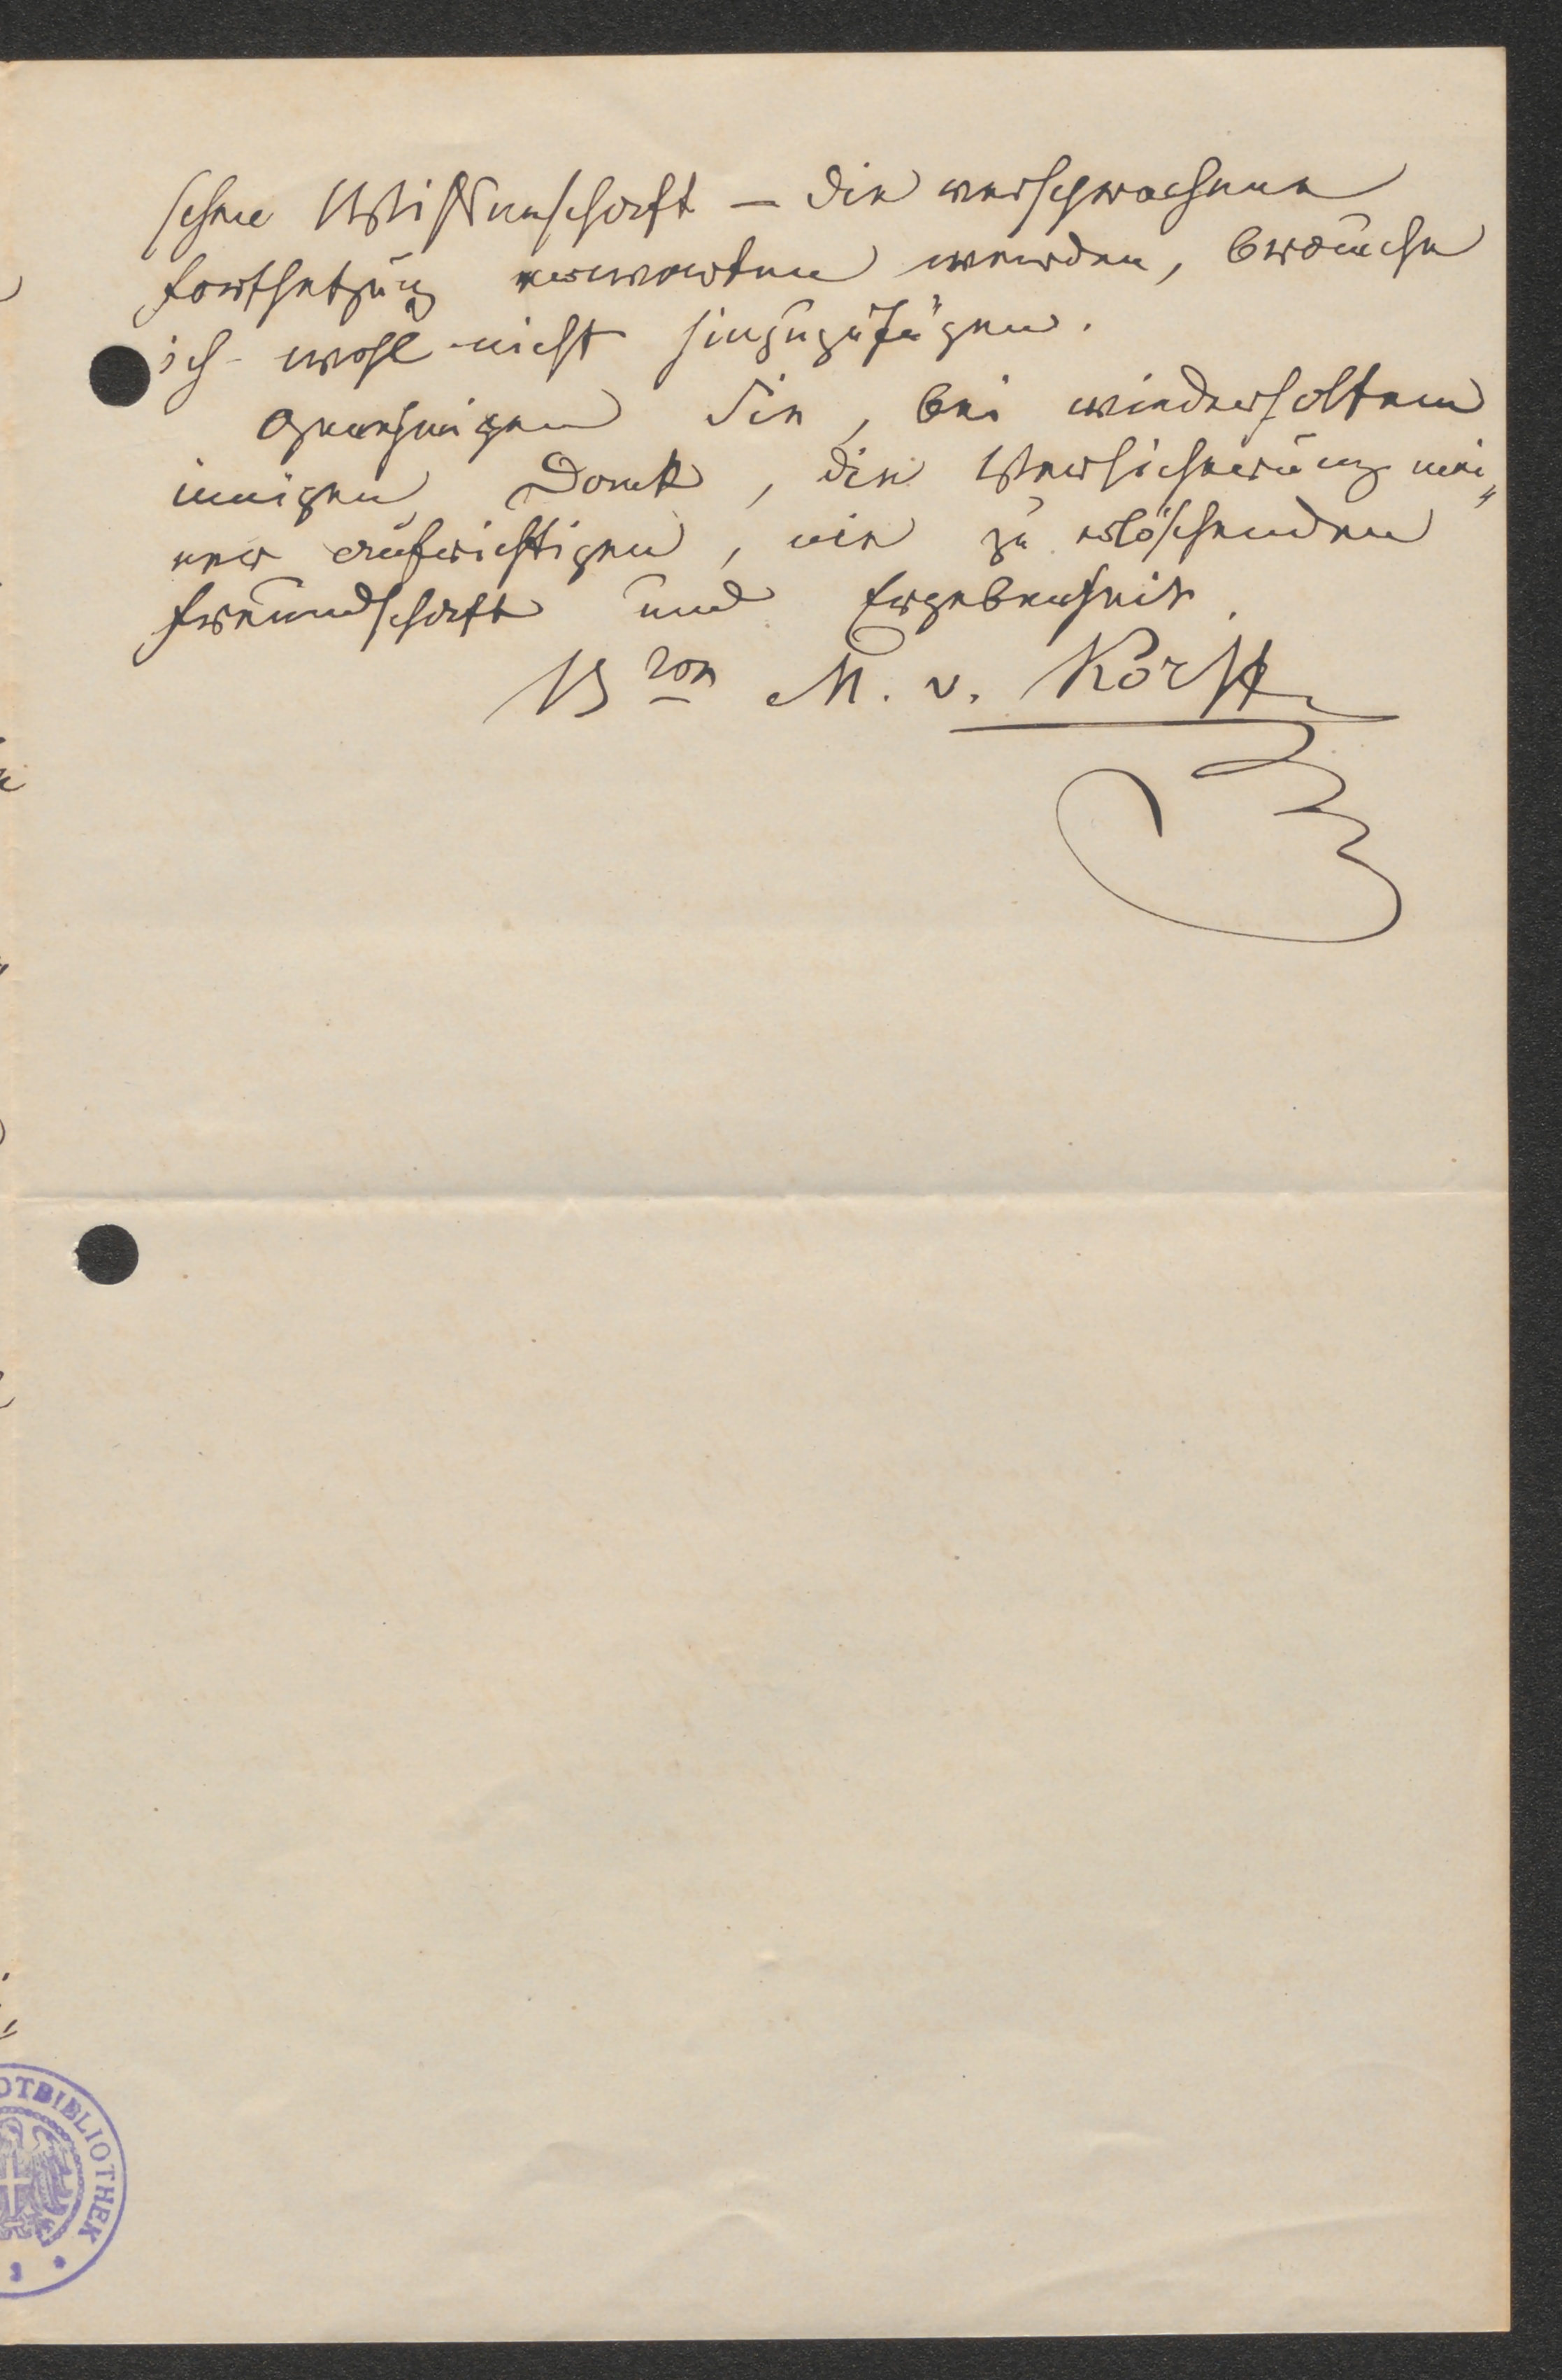 schen Wissenschaft – die versprochene
Fortsetzung erwarten werden, brauche
ich wohl nicht hinzuzufügen.
Genehmigen Sie, bei wiederholtem
innigen Dank, die Versicherung mei„
ner aufrichtigen, nie zu erlöschenden
Freundschaft und Ergebenheit.
Bron M. v. Korff
OTBIBLIOTHEK